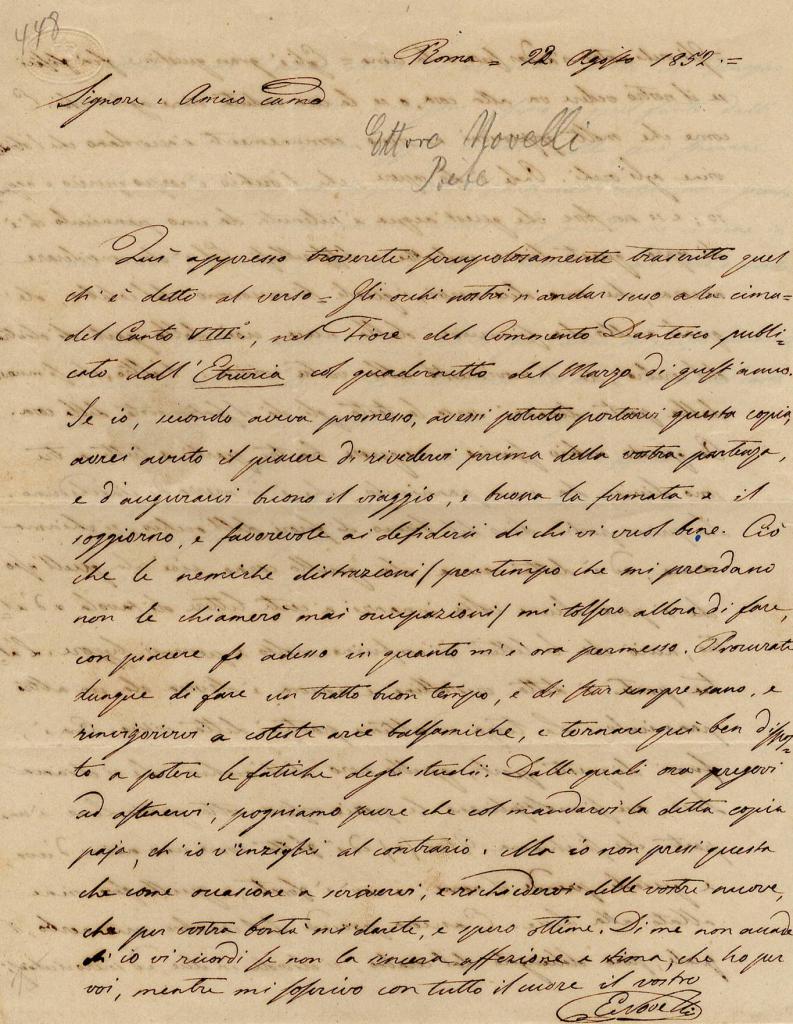 448
Roma = 22 Agosto 1852. =
Signore e Amico
Ettore Novelli
Qui appresso troverete scrupolosamente trascritto quel
ch'è detto al verso = Gli occhi nostri n'andar suso a la cima =
del Canto VIII°, nel Fiore del Commento Dantesco publi=
cato dall'Etruria col quadernetto del Marzo di quest'anno.
Se io, secondo aveva promesso, avessi potuto portarvi questa copia,
avrei avuto il piacere di rivedervi prima della vostra partenza,
e d'augurarvi buono il viaggio, e buona la fermata e il
soggiorno, e favorevole ai desiderii di chi vi vuol bene. Ciò
che le nemiche distrazioni / per tempo che mi prendano
non le chiamerò mai occupazioni / mi tolsero allora di fare,
con piacere fo adesso in quanto m'è ora permesso. Procurate
dunque di fare un tratto buon tempo, e di star sempre sano, e
rinvigorirvi a coteste arie balsamiche, e tornare quì ben dispos=
to a potere le fatiche degli studii. Dalle quali ora pregovi
ad astenervi, pogniamo pure che col mandarvi la detta copia
paja, ch'io v'inzighi al contrario. Ma io non presi questa
che come occasione a scrivervi, e richiedervi delle vostre nuove,
che per vostra bontà mi darete, e spero ottime. Di me non accade
ch'io vi ricordi se non la sincera affezione e stima, che ho per
voi, mentre mi soscrivo con tutto il cuore il vostro
E. Novelli